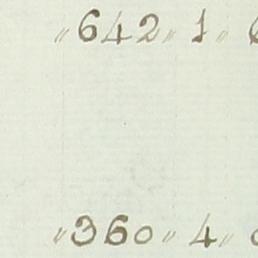 〃642〃1〃
〃360〃4〃